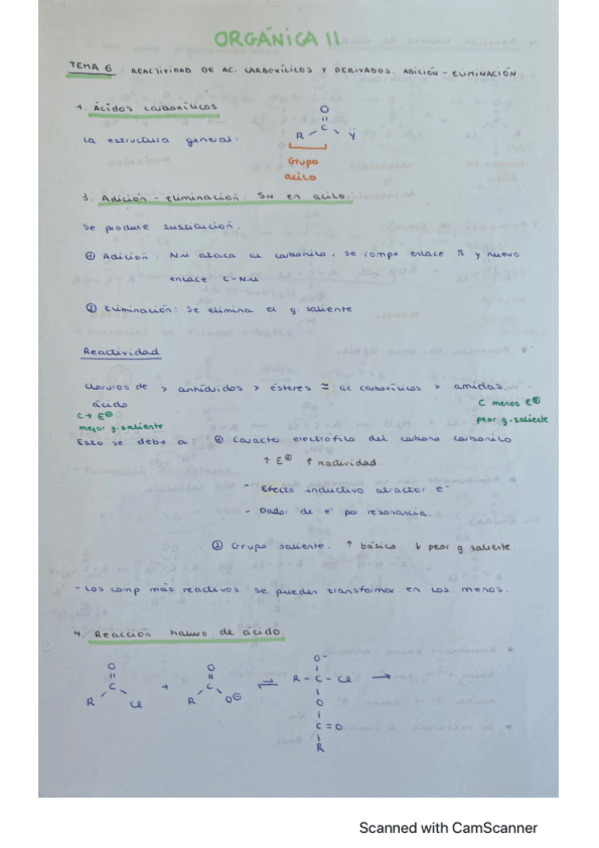 ORGÁNICA II
TEMA 6: REACTIVIDAD DE AC. CARBOXÍLICOS Y DERIVADOS. ADICIÓN - ELIMINACIÓN
1. Ácidos carboxílicos
La estructura general:
O
R C Ÿ
Grupo
acilo
3. Adición - eliminación SN en acilo.
Se produce sustitución.
① Adición: Nu ataca al carbonilo, se rompe enlace π y nuevo
enlace C-Nu
② Eliminación: Se elimina el g. saliente
Reactividad
Cloruros de > anhídridos > ésteres ≈ ac carboxílicos > amidas
ácido
C + E⊕
mejor g. saliente
C menos e⊕
peor g. saliente
Esto se debe a: ① Carácter electrófilo del carbono carbonilo
↑ E⊕ ↑ reactividad
- Efecto inductivo atractor e⁻
- Dador de e⁻ por resonancia.
② Grupo saliente. ↑ básico ↓ peor g saliente
- Los comp más reactivos se pueden transformar en los menos.
4. Reacción haluro de ácido.
O O O⁻
R C Cl + R C O⊖ ⇌ R - C - Cl →
O
C = O
R
Scanned with CamScanner